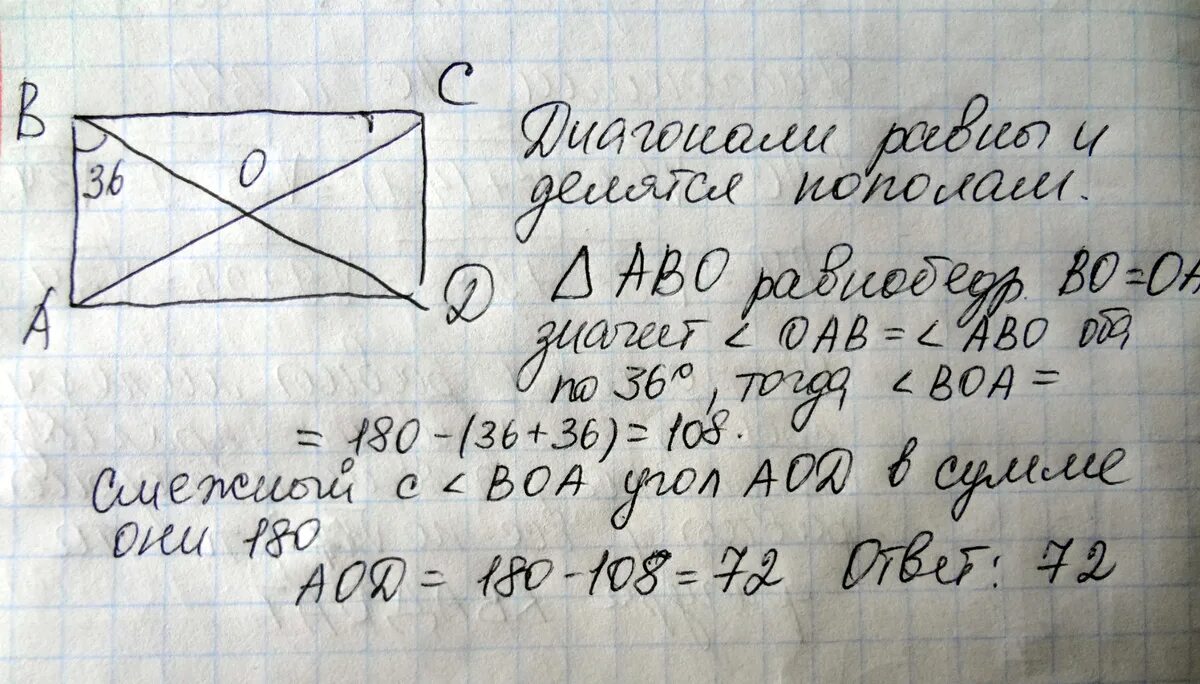 B
C
36
O
A
D
Диагонали равны и
делятся пополам.
△ ABO равнобедр. BO=OA
значит < OAB = < ABO оба
по 36°, тогда < BOA =
= 180-(36+36)=108.
Смежный с < BOA угол AOD в сумме
они 180
AOD = 180-108=72 Ответ: 72